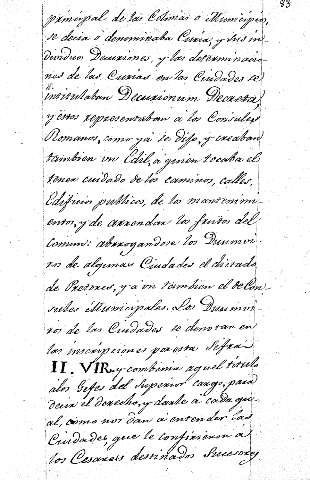 83
principal de las Colonias o Municipios,
se decia o denominaba Curia, y sus in
dividuos Decuriones, y las determinacio
nes de las Curias en las Ciudades se
intitulaban Decurionum Decreta,
y estos representaban a los Consules
Romanos, como ya se dijo, y creaban
tambien un Edil, a quien tocaba el
tener cuidado de los caminos, calles,
Edificios publicos, de los mantenimi
entos, y de arrendar los frutos del
comun: abrrogandose los Duumvi
ros de algunas Ciudades el dictado
de Pretores, y aun tambien el de Con
sules Municipales. Los Duumvi
ros de las Ciudades se denotan en
las inscripciones por esta sifra
II. VIR. y combenia aquel titulo
a los Gefes del Superior cargo, para
decir el derecho, y darle a cada qu
al, como nos dan a entender las
Ciudades, que le confirieron a
los Cesares destinados Sucesores